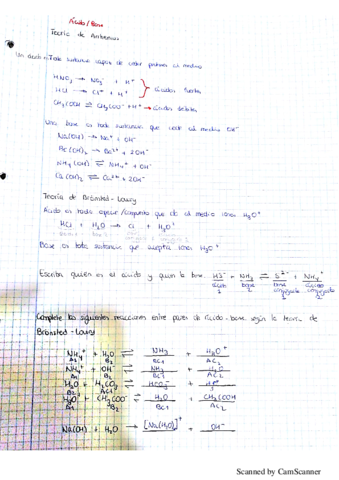 Ácido/Base
Teoría de Arrhenius
Un ácido = Toda sustancia capaz de ceder protones al medio
HNO₃ → NO₃⁻ + H⁺
HCl → Cl⁻ + H⁺
ácidos fuertes
CH₃COOH ⇌ CH₃COO⁻ + H⁺ → ácidos débiles
Una base es toda sustancia que cede al medio OH⁻
Na(OH) → Na⁺ + OH⁻
(OH)₂ → + 2OH⁻
NH₄(OH) ⇌ NH₄⁺ + OH⁻
Ca(OH)₂ ⇌ Ca²⁺ + 2OH⁻
Teoría de Brönsted - Lowry
Ácido es toda especie/compuesto que da al medio iones H₃O⁺
HCl + H₂O → Cl + H₃O⁺
Base es toda sustancia que acepta iones H₃O⁺
Escriba quién es el ácido y quién la base. HS⁻ + NH₃ ⇌ S²⁻ + NH₄⁺
ácido 1 base 2 base conjugada 1 ácido conjugado 2
Complete las siguientes reacciones entre pares de ácido-base según la teoría de
Brönsted - Lowry
NH₄⁺ + H₂O ⇌ NH₃ + H₃O⁺
A1 B2 BC1 AC2
NH₄⁺ + OH⁻ ⇌ NH₃ + H₂O
A1 B2 BC1 AC2
H₂O + H₂CO₃ ⇌ HCO₃⁻ +
H₂O + CH₃COO⁻ ⇌ H₂O + CH₃COOH
A1 B2 BC1 AC2
Na(OH) + H₂O → [Na(H₂O)]⁺ + OH⁻
Scanned by CamScanner